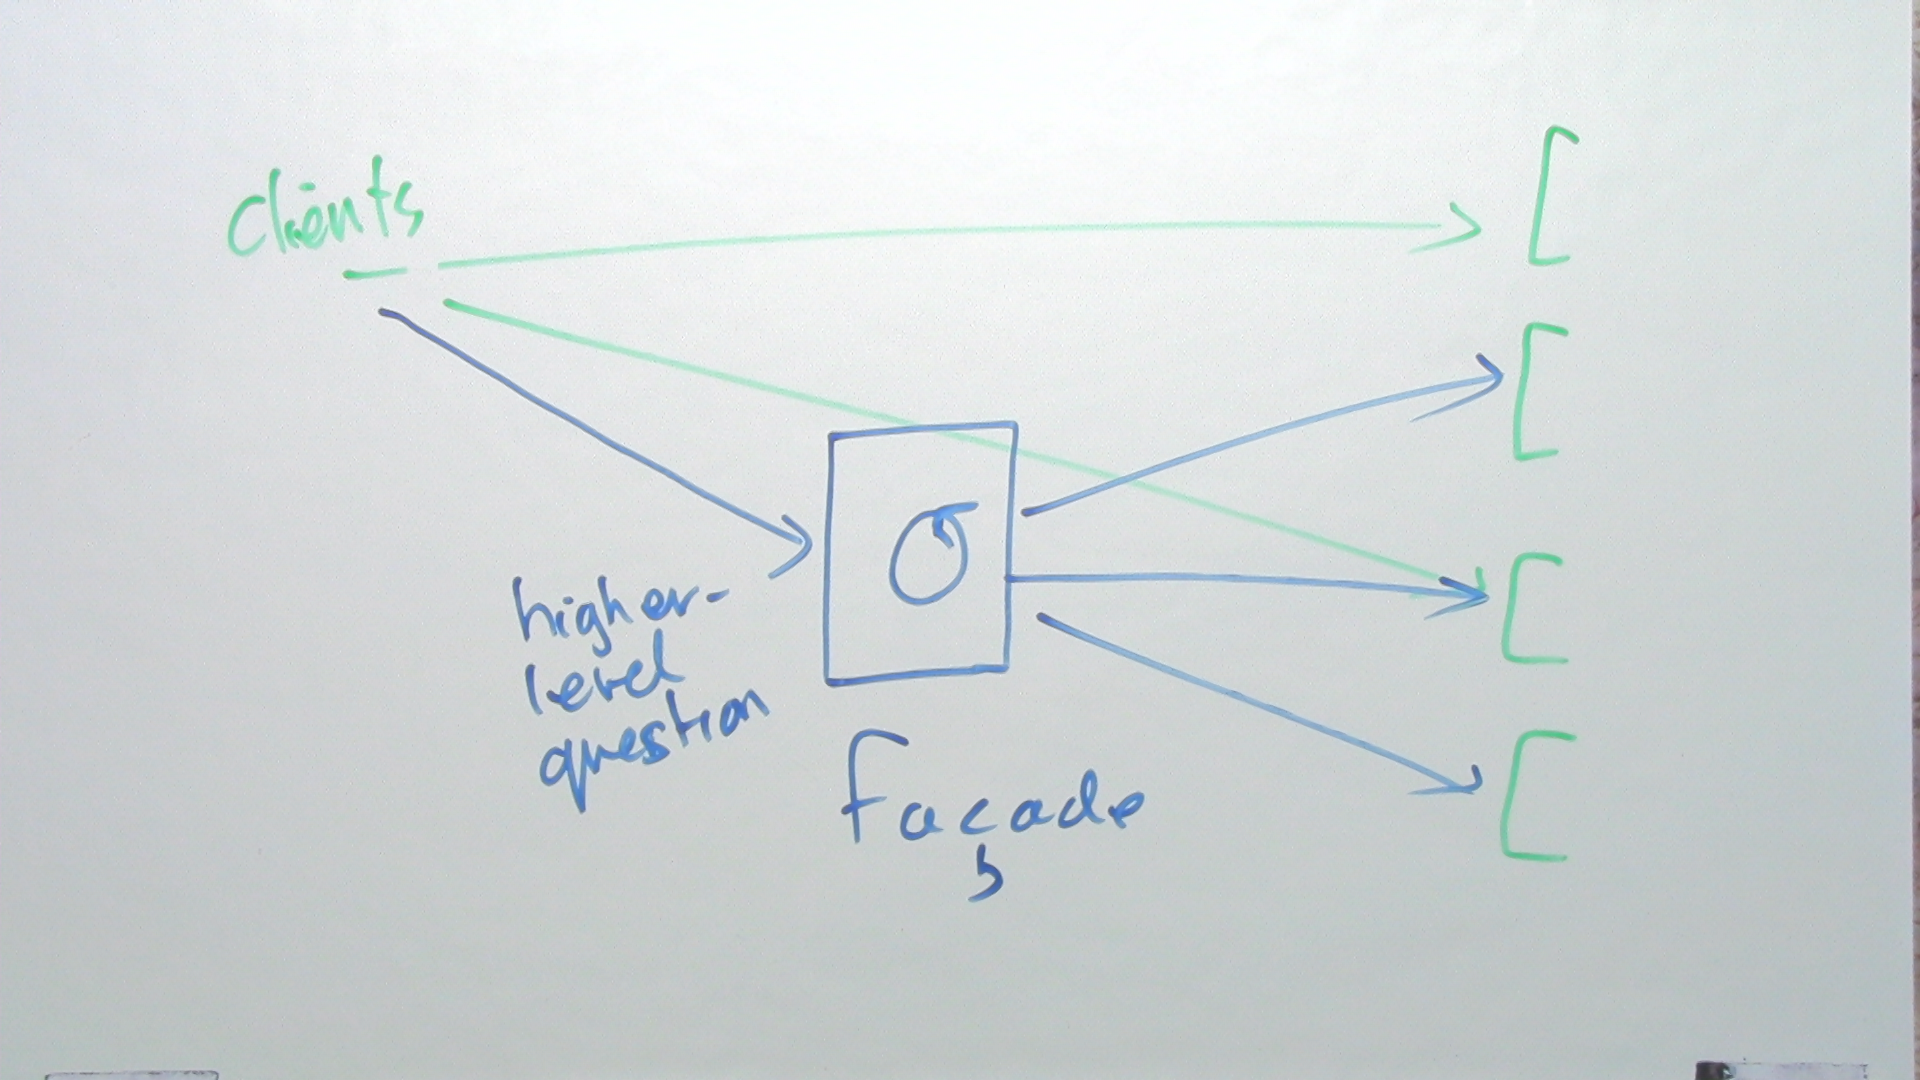 clients
higher-
level
question
façade